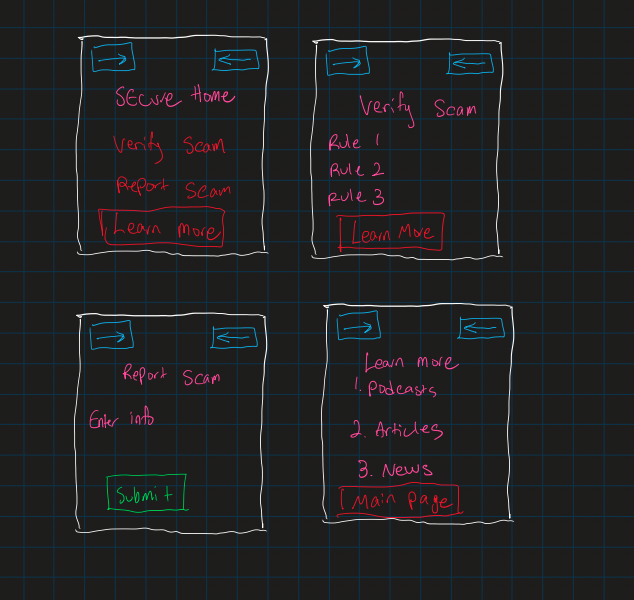 Secure Home
Verify Scam
Report Scam
Learn more
Verify Scam
Rule 1
Rule 2
Rule 3
Learn More
Report Scam
Enter info
Submit
Learn more
1. Podcasts
2. Articles
3. News
Main page